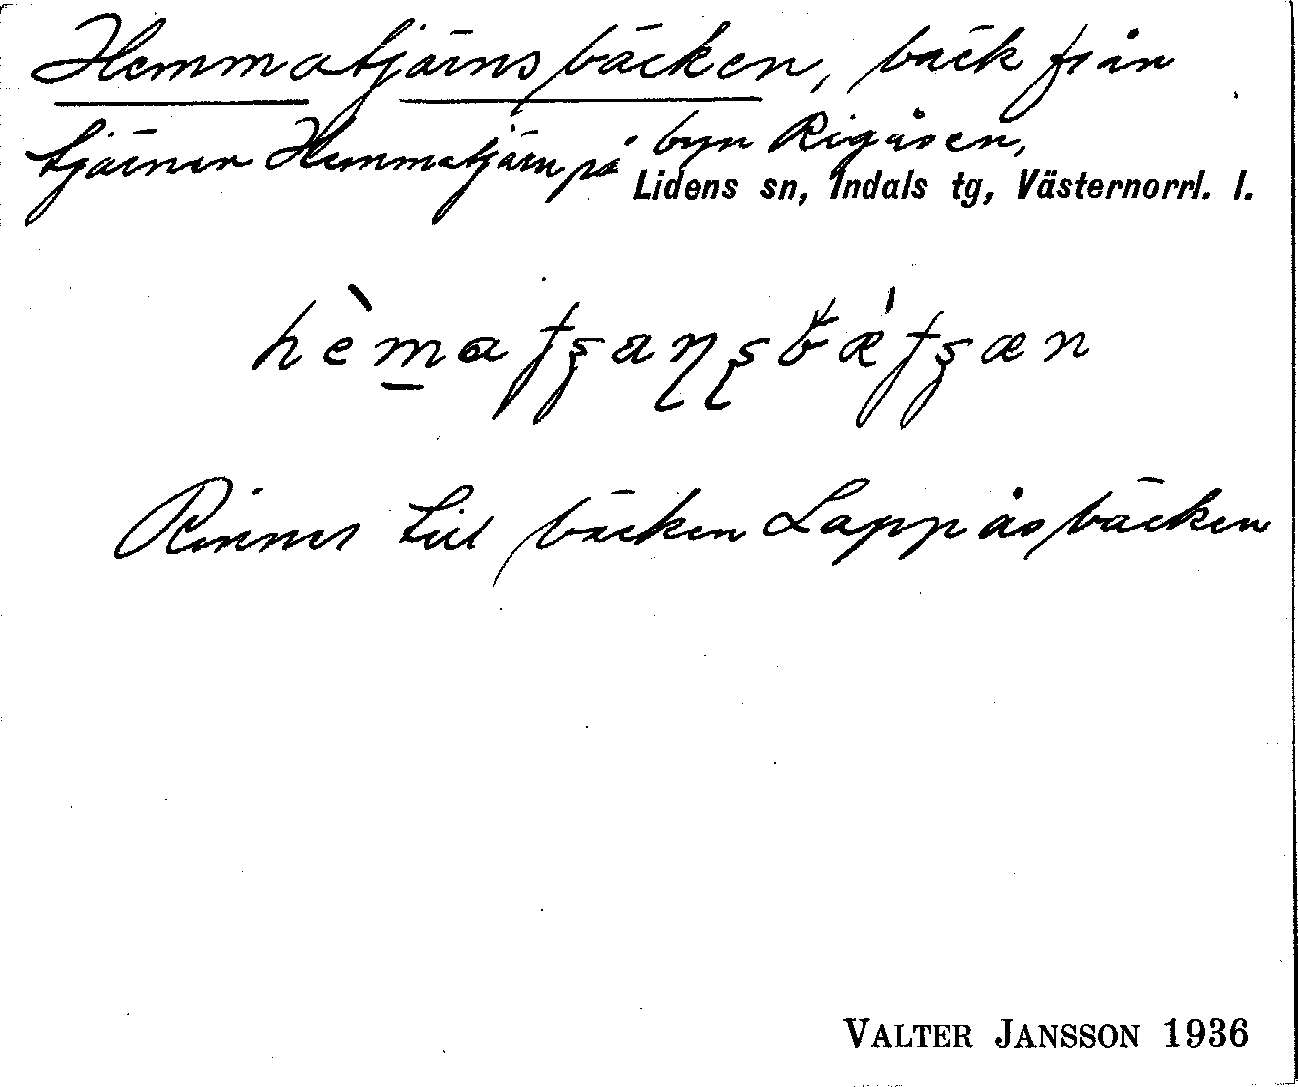 Hemmatjärnsbäcken, bäck från
tjärnen Hemmatjärn på byn Rigåsen,
Lidens sn, Indals tg, Västernorrl. l.
Rinner till bäcken Lappåsbäcken
VALTER JANSSON 1936